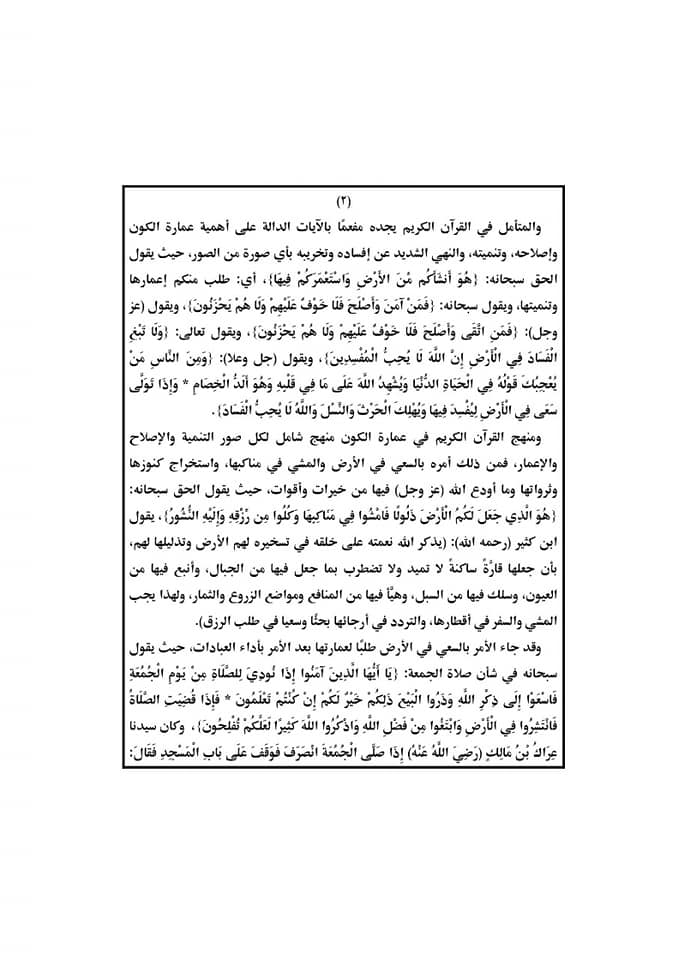 (٢)
والمتأمل في القرآن الكريم يجده مفعمًا بالآيات الدالة على أهمية عمارة الكون
وإصلاحه، وتنميته، والنهي الشديد عن إفساده وتخريبه بأي صورة من الصور، حيث يقول
الحق سبحانه: {هُوَ أَنشَأَكُم مِّنَ الأَرْضِ وَاسْتَعْمَرَكُمْ فِيهَا}، أي: طلب منكم إعمارها
وتنميتها، ويقول سبحانه: {فَمَنْ آمَنَ وَأَصْلَحَ فَلَا خَوْفٌ عَلَيْهِمْ وَلَا هُمْ يَحْزَنُونَ}، ويقول (عز
وجل): {فَمَنِ اتَّقَى وَأَصْلَحَ فَلَا خَوْفٌ عَلَيْهِمْ وَلَا هُمْ يَحْزَنُونَ}، ويقول تعالى: {وَلَا تَبْغِ
الْفَسَادَ فِي الْأَرْضِ إِنَّ اللَّهَ لَا يُحِبُّ الْمُفْسِدِينَ}، ويقول (جل وعلا): {وَمِنَ النَّاسِ مَنْ
يُعْجِبُكَ قَوْلُهُ فِي الْحَيَاةِ الدُّنْيَا وَيُشْهِدُ اللَّهَ عَلَى مَا فِي قَلْبِهِ وَهُوَ أَلَدُّ الْخِصَامِ * وَإِذَا تَوَلَّى
سَعَى فِي الْأَرْضِ لِيُفْسِدَ فِيهَا وَيُهْلِكَ الْحَرْثَ وَالنَّسْلَ وَاللَّهُ لَا يُحِبُّ الْفَسَادَ}.
ومنهج القرآن الكريم في عمارة الكون منهج شامل لكل صور التنمية والإصلاح
والإعمار، فمن ذلك أمره بالسعي في الأرض والمشي في مناكبها، واستخراج كنوزها
وثرواتها وما أودع الله (عز وجل) فيها من خيرات وأقوات، حيث يقول الحق سبحانه:
{هُوَ الَّذِي جَعَلَ لَكُمُ الْأَرْضَ ذَلُولًا فَامْشُوا فِي مَنَاكِبِهَا وَكُلُوا مِن رِّزْقِهِ وَإِلَيْهِ النُّشُورُ}، يقول
ابن كثير (رحمه الله): (يذكر الله نعمته على خلقه في تسخيره لهم الأرض وتذليلها لهم،
بأن جعلها قارَّةً ساكنةً لا تميد ولا تضطرب بما جعل فيها من الجبال، وأنبع فيها من
العيون، وسلك فيها من السبل، وهيَّأ فيها من المنافع ومواضع الزروع والثمار، ولهذا يجب
المشي والسفر في أقطارها، والتردد في أرجائها بحثًا وسعيا في طلب الرزق).
وقد جاء الأمر بالسعي في الأرض طلبًا لعمارتها بعد الأمر بأداء العبادات، حيث يقول
سبحانه في شأن صلاة الجمعة: {يَا أَيُّهَا الَّذِينَ آمَنُوا إِذَا نُودِيَ لِلصَّلَاةِ مِنْ يَوْمِ الْجُمُعَةِ
فَاسْعَوْا إِلَى ذِكْرِ اللَّهِ وَذَرُوا الْبَيْعَ ذَلِكُمْ خَيْرٌ لَكُمْ إِنْ كُنْتُمْ تَعْلَمُونَ * فَإِذَا قُضِيَتِ الصَّلَاةُ
فَانْتَشِرُوا فِي الْأَرْضِ وَابْتَغُوا مِنْ فَضْلِ اللَّهِ وَاذْكُرُوا اللَّهَ كَثِيرًا لَعَلَّكُمْ تُفْلِحُونَ}، وكان سيدنا
عِرَاكُ بْنُ مَالِكٍ (رَضِيَ اللَّهُ عَنْهُ) إِذَا صَلَّى الْجُمُعَةَ انْصَرَفَ فَوَقَفَ عَلَى بَابِ الْمَسْجِدِ فَقَالَ: